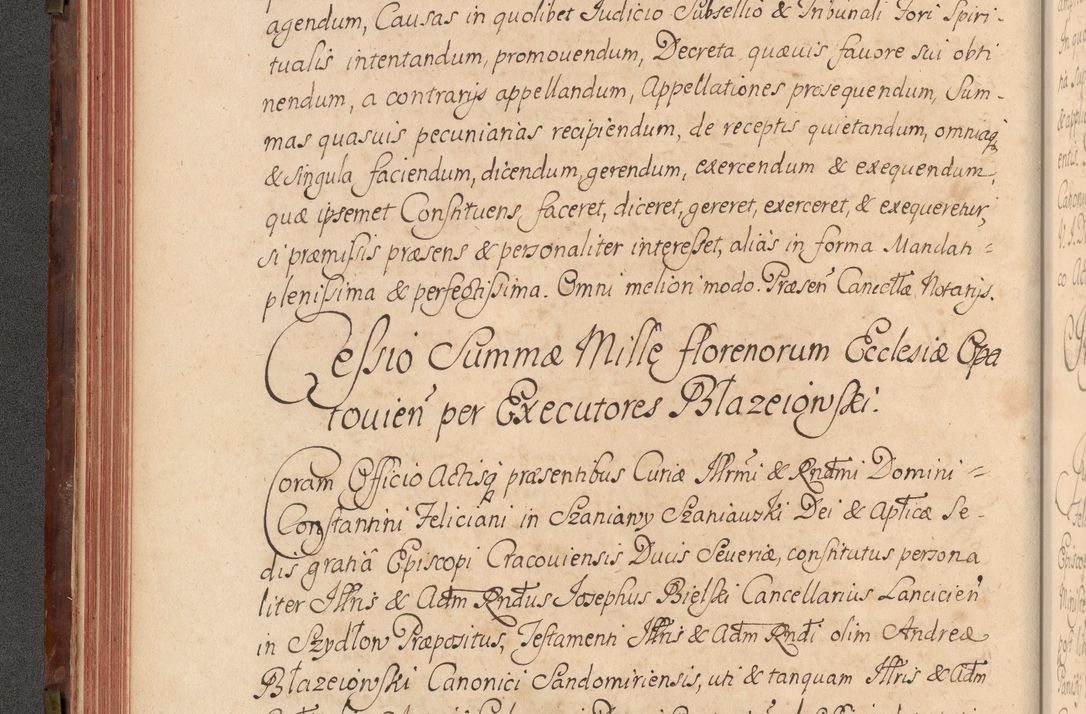 agendum, Causas in quolibet Judicio Subsellio & Tribunali Fori Spiri-
tualis intentandum, promouendum, Decreta quæuis fauore sui obti
nendum, a contrarijs appellandum, Appellationes prosequendum, Sum-
mas quasuis pecuniarias recipiendum, de receptis quietandum, omniaq
& singula faciendum, dicendum, gerendum, exercendum & exequendum,
quæ ipsemet Constituens, faceret, diceret, gereret, exerceret, & exequeretur,
si præmissis præsens & personaliter interesset, aliàs in forma Mandati =
plenissima & perfectissima. Omni meliori modo. Præsen Cancellæ Notarijs.
Cessio Summæ Mille florenorum Ecclesiæ Opa
touien per Executores Błazeiowski.
Coram Officio Actisq præsentibus Curiæ Illrmi & Rndmi Domini =
Constantini Feliciani in Szaniawy Szaniauski Dei & Aplicæ Se-
dis gratiâ Episcopi Cracouiensis Ducis Seueriæ, constitutus persona
liter Illris & Adm Rndus Josephus Bielski Cancellarius Lancicien
in Szydłow Præpositus, Testamenti Illris & Adm Rndi olim Andreæ
Błazeiowski Canonici Sandomiriensis, uti & tanquam Illris & Adm